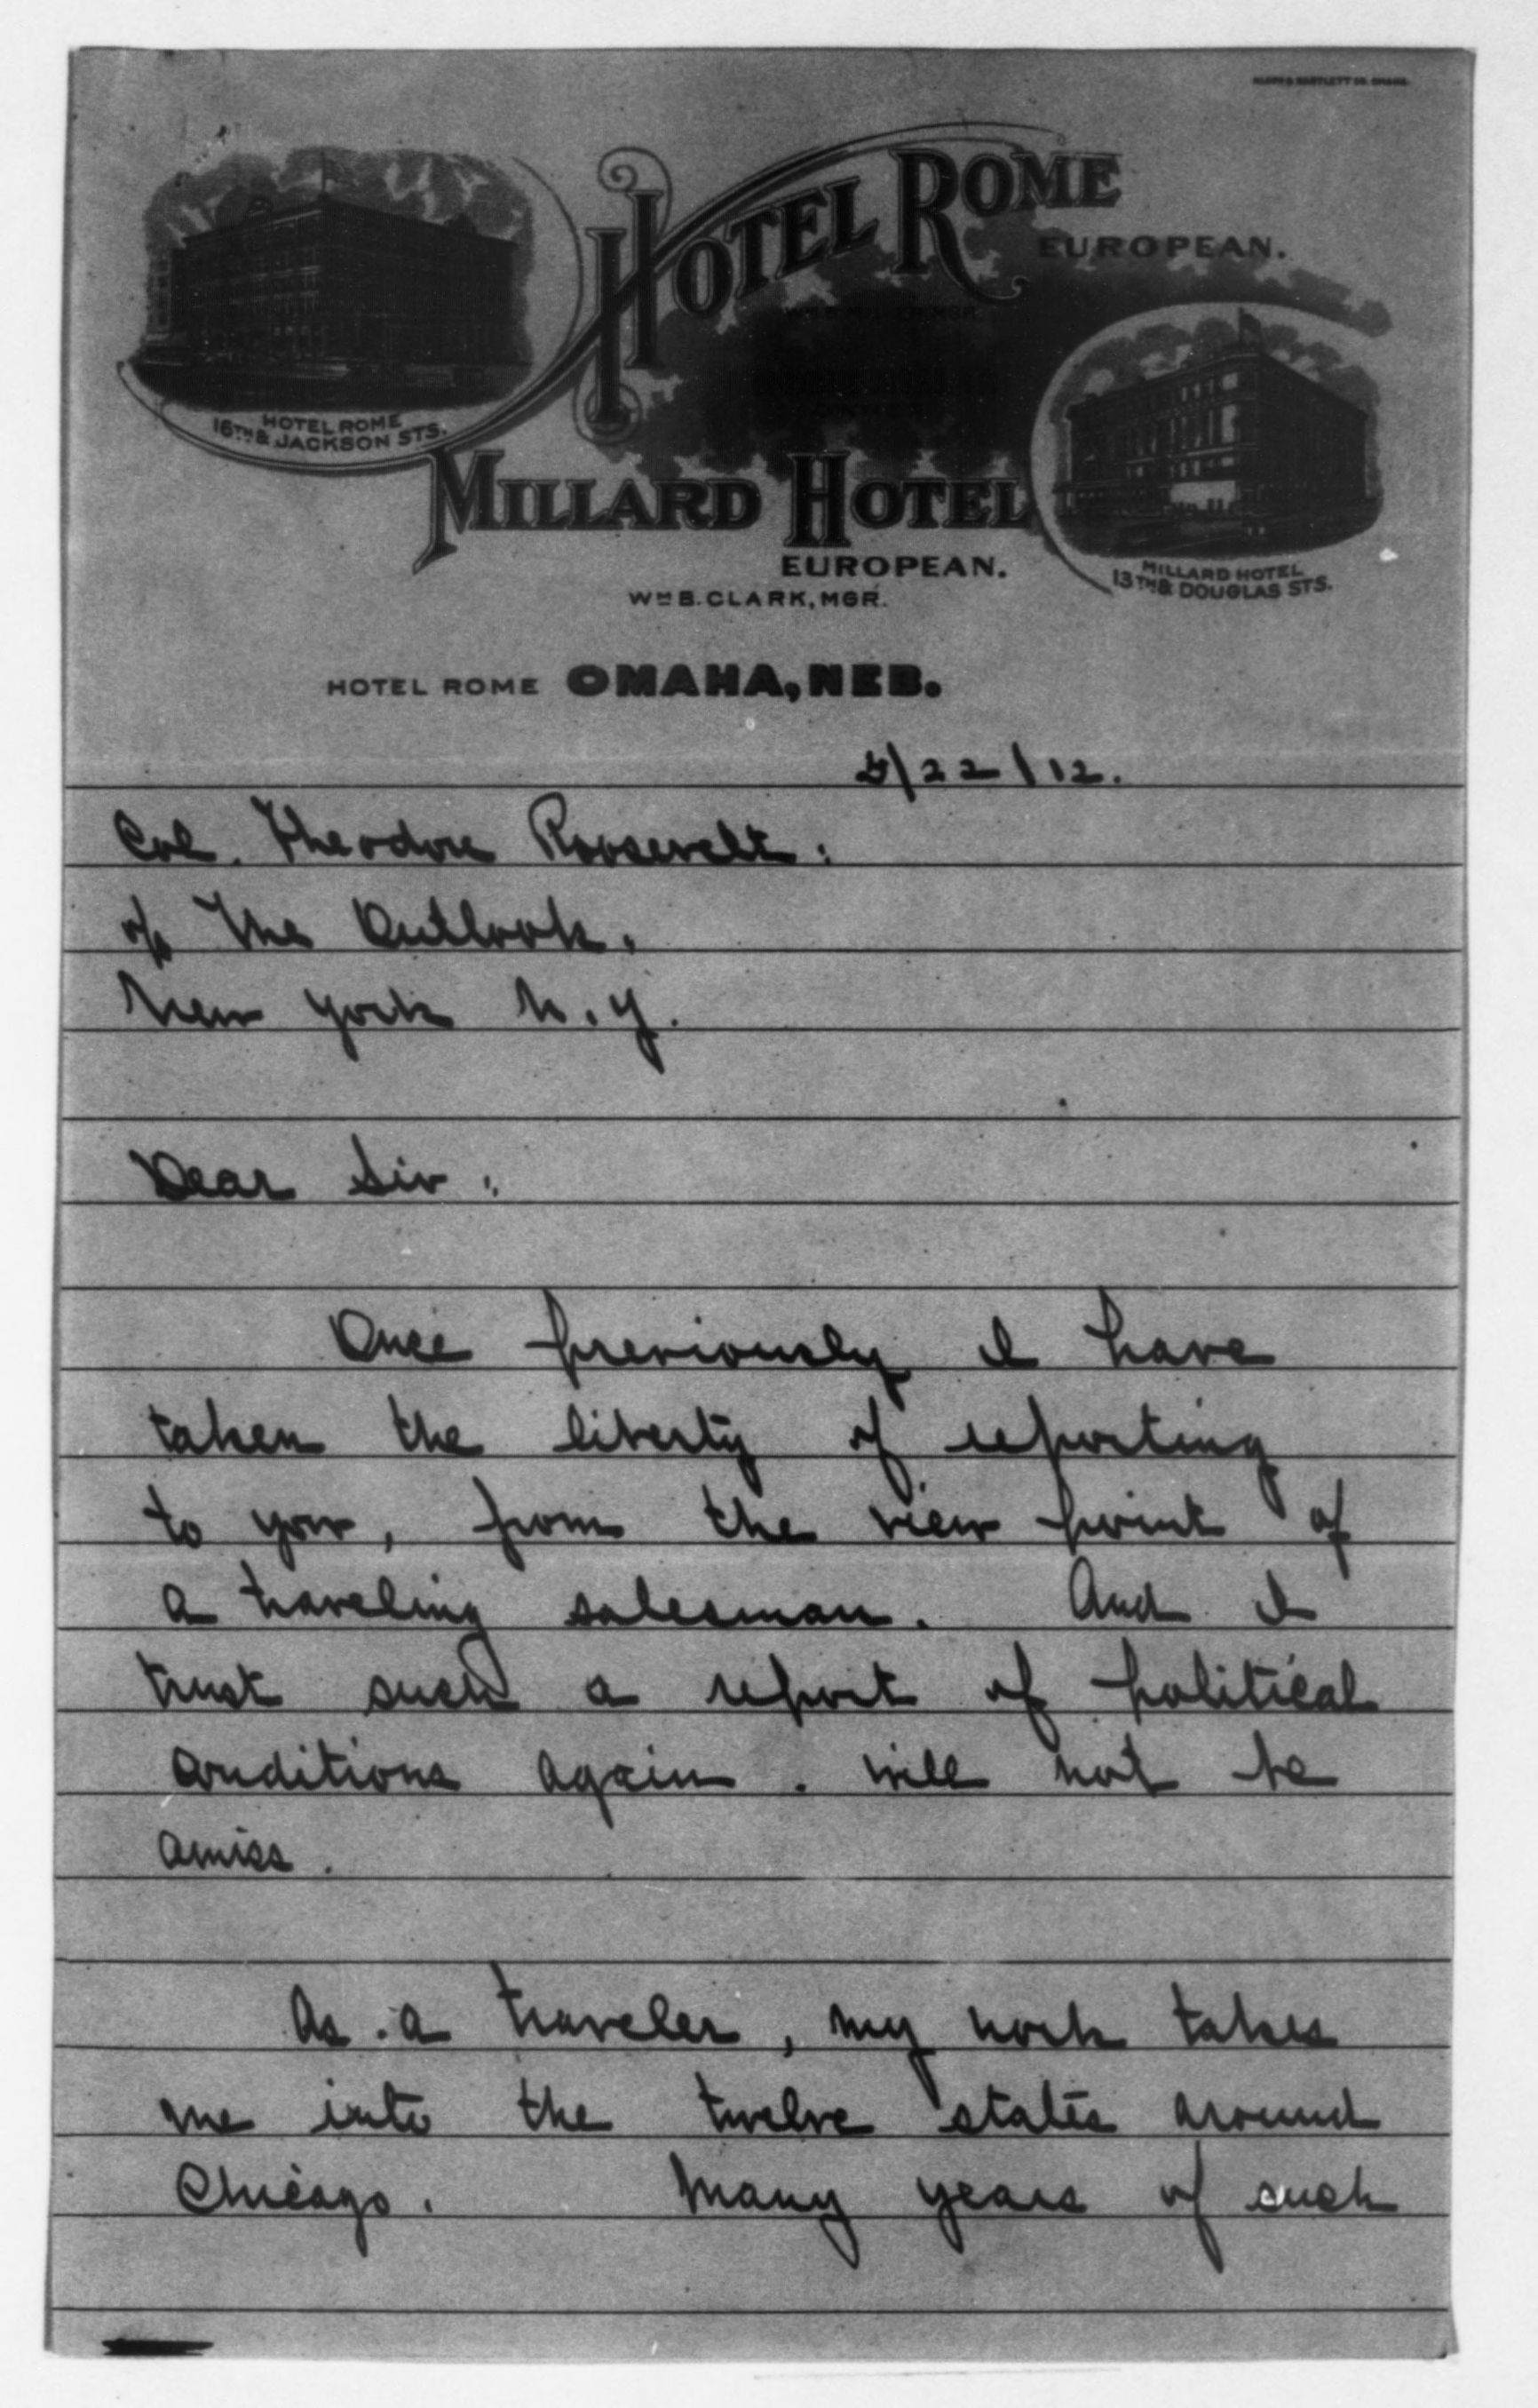 HOTEL ROME
EUROPEAN.
HOTEL ROME
16TH & JACKSON STS.
MILLARD HOTEL
EUROPEAN.
WM B. CLARK, MGR.
MILLARD HOTEL
13TH & DOUGLAS STS.
HOTEL ROME OMAHA, NEB.
5/22/12.
Col. Theodore Roosevelt:
c/o The Outlook,
New York N.Y.
Dear Sir:
Once previously I have
taken the liberty of reporting
to you, from the view point of
a traveling salesman. And I
trust such a report of political
conditions again. will not be
amiss.
As a traveler, my work takes
me into the twelve states around
Chicago. Many years of such